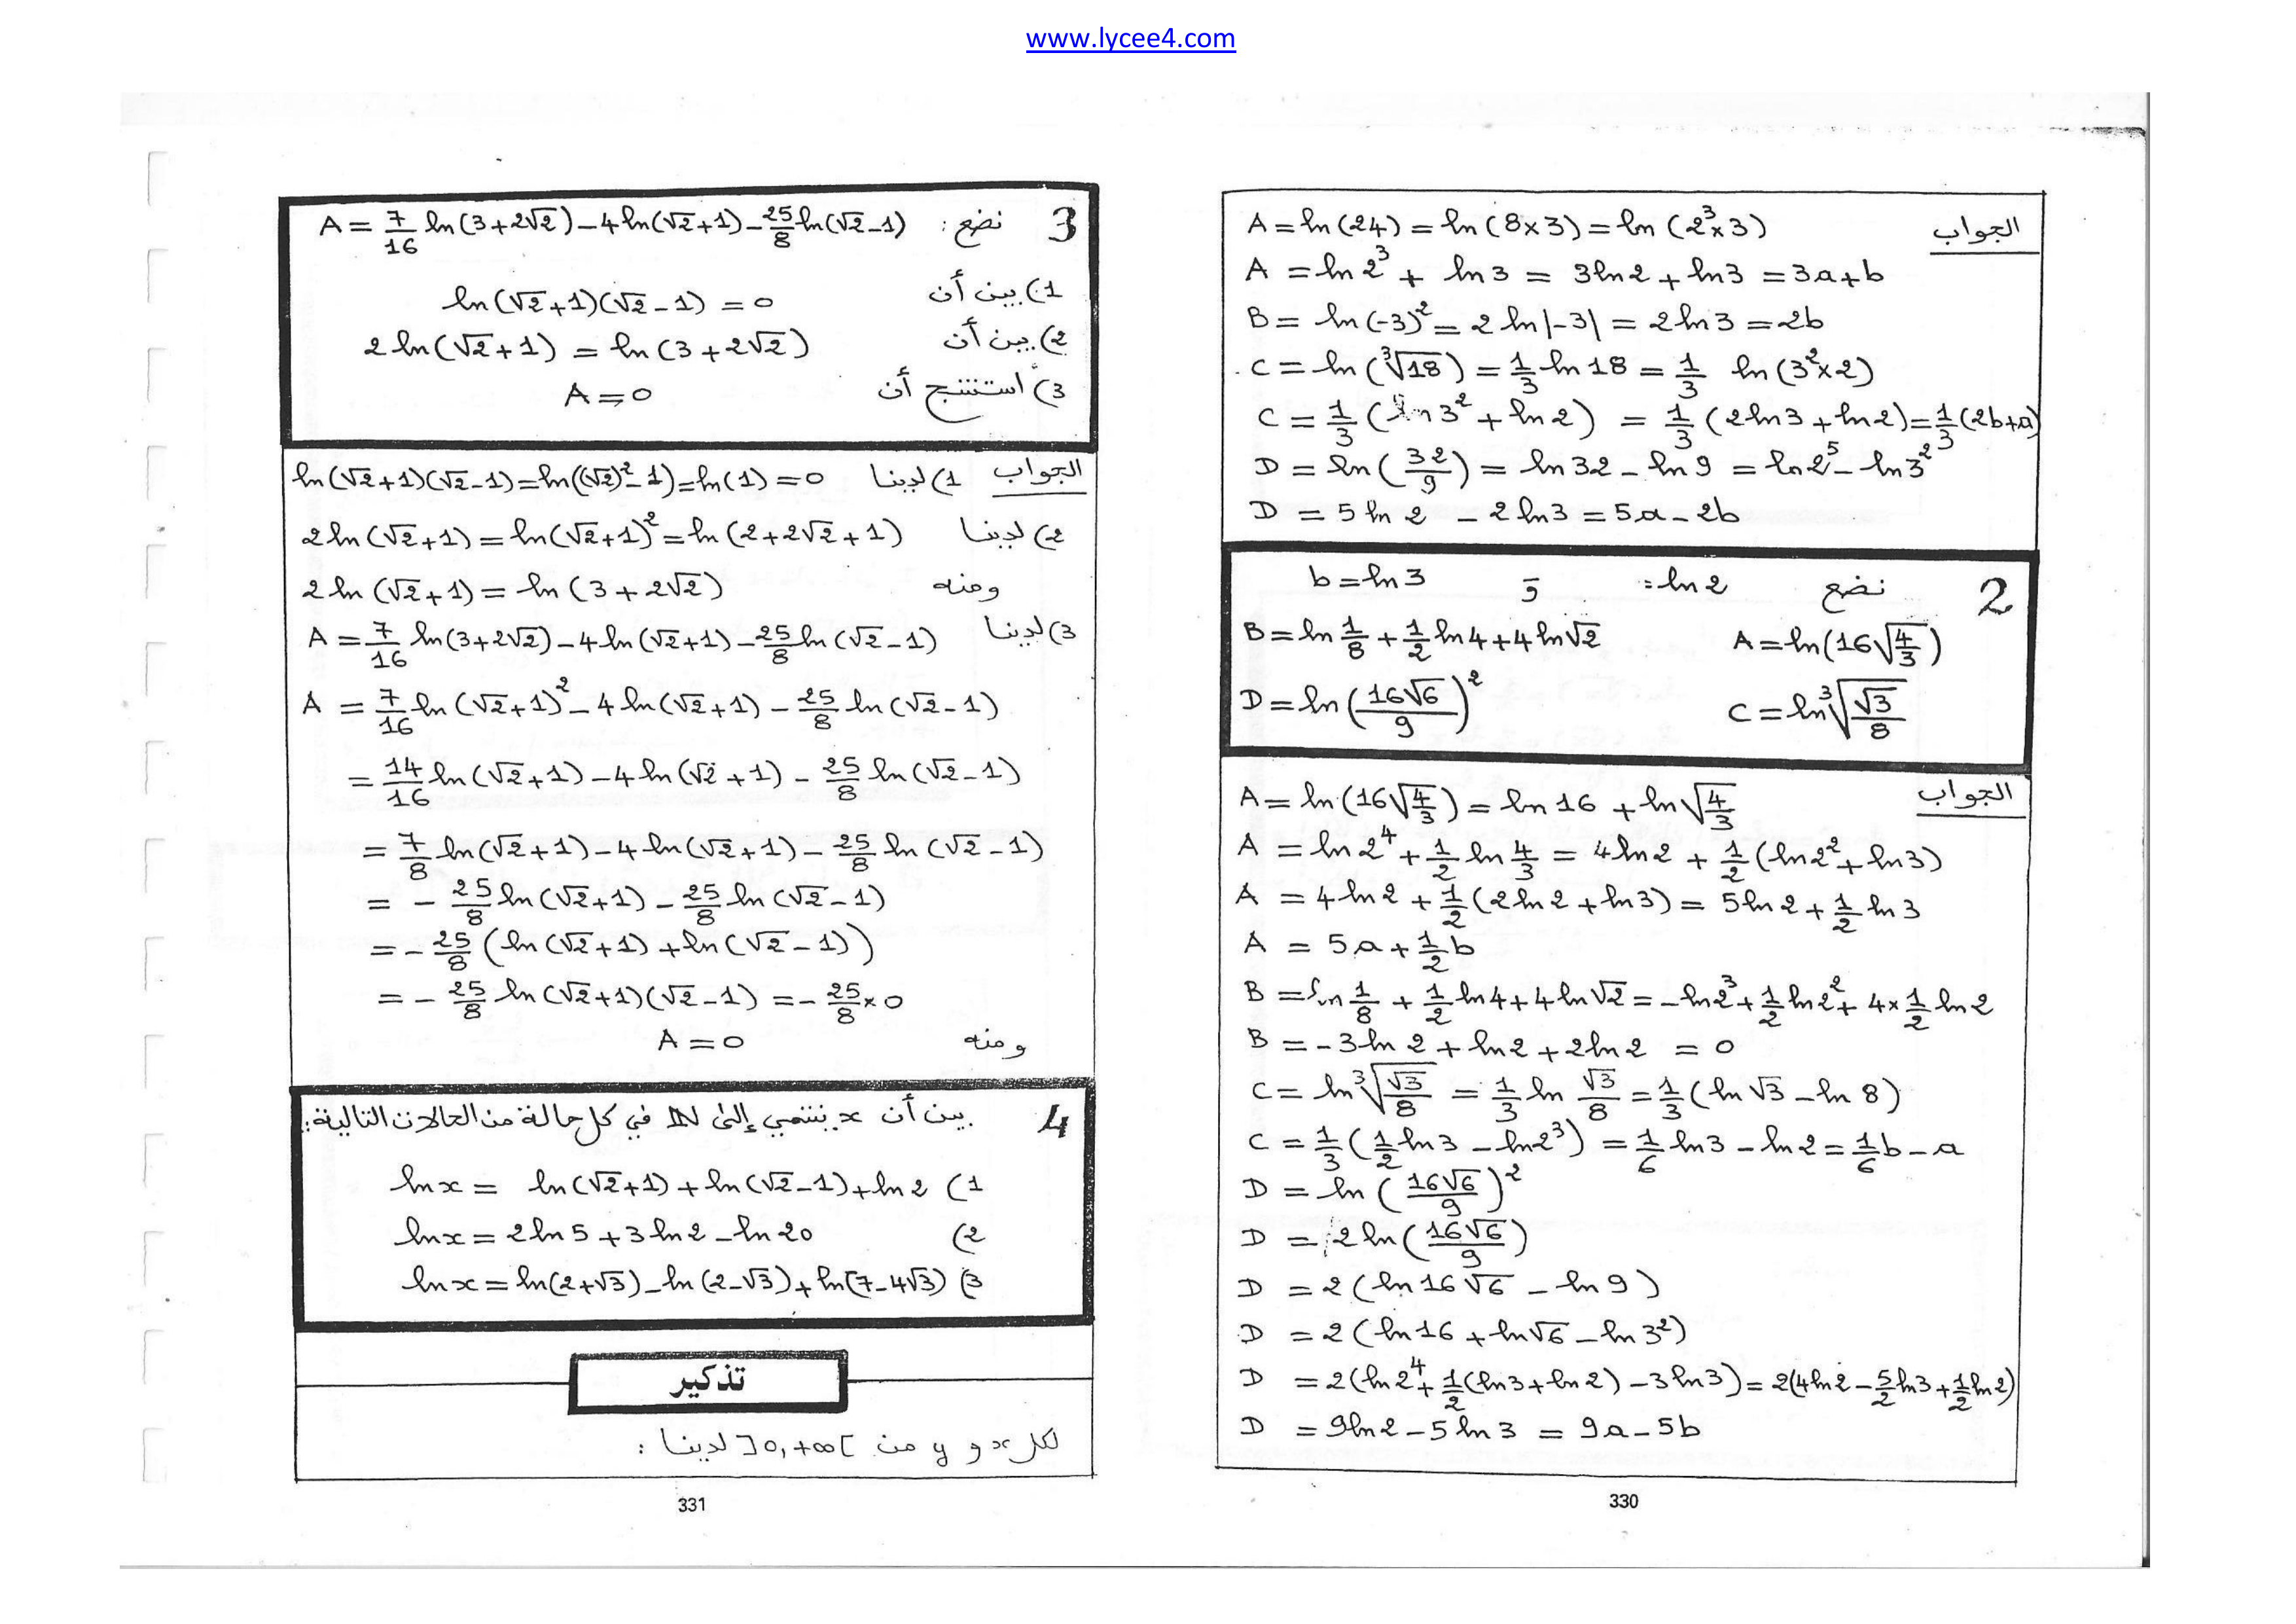 www.lycee4.com
الجواب A = ln(24) = ln(8×3) = ln(2³×3)
A = ln2³ + ln3 = 3ln2 + ln3 = 3a+b
B = ln(-3)² = 2ln|-3| = 2ln3 = 2b
C = ln(∛18) = 1/3 ln18 = 1/3 ln(3²×2)
C = 1/3 (ln3² + ln2) = 1/3 (2ln3 + ln2) = 1/3 (2b+a)
D = ln(32/9) = ln32 - ln9 = ln2⁵ - ln3²
D = 5ln2 - 2ln3 = 5a - 2b
2 نضع = ln2 و b = ln3
A = ln(16√(4/3)) B = ln 1/8 + 1/2 ln4 + 4ln√2
C = ln ∛(√3/8) D = ln(16√6/9)²
الجواب A = ln(16√(4/3)) = ln16 + ln√(4/3)
A = ln2⁴ + 1/2 ln 4/3 = 4ln2 + 1/2 (ln2² + ln3)
A = 4ln2 + 1/2 (2ln2 + ln3) = 5ln2 + 1/2 ln3
A = 5a + 1/2 b
B = ln 1/8 + 1/2 ln4 + 4ln√2 = -ln2³ + 1/2 ln2² + 4×1/2 ln2
B = -3ln2 + ln2 + 2ln2 = 0
C = ln ∛(√3/8) = 1/3 ln √3/8 = 1/3 (ln√3 - ln8)
C = 1/3 (1/2 ln3 - ln2³) = 1/6 ln3 - ln2 = 1/6 b - a
D = ln(16√6/9)²
D = 2ln(16√6/9)
D = 2(ln16√6 - ln9)
D = 2(ln16 + ln√6 - ln3²)
D = 2(ln2⁴ + 1/2 (ln3 + ln2) - 3ln3) = 2(4ln2 - 5/2 ln3 + 1/2 ln2)
D = 9ln2 - 5ln3 = 9a - 5b
330
3 نضع : A = 7/16 ln(3+2√2) - 4ln(√2+1) - 25/8 ln(√2-1)
1) بين أن ln(√2+1)(√2-1) = 0
2) بين أن 2ln(√2+1) = ln(3+2√2)
3) استنتج أن A = 0
الجواب 1) لدينا ln(√2+1)(√2-1) = ln((√2)²-1) = ln(1) = 0
2) لدينا 2ln(√2+1) = ln(√2+1)² = ln(2+2√2+1)
ومنه 2ln(√2+1) = ln(3+2√2)
3) لدينا A = 7/16 ln(3+2√2) - 4ln(√2+1) - 25/8 ln(√2-1)
A = 7/16 ln(√2+1)² - 4ln(√2+1) - 25/8 ln(√2-1)
= 14/16 ln(√2+1) - 4ln(√2+1) - 25/8 ln(√2-1)
= 7/8 ln(√2+1) - 4ln(√2+1) - 25/8 ln(√2-1)
= - 25/8 ln(√2+1) - 25/8 ln(√2-1)
= - 25/8 (ln(√2+1) + ln(√2-1))
= - 25/8 ln(√2+1)(√2-1) = - 25/8 × 0
ومنه A = 0
4 بين أن x ينتمي إلى ℕ في كل حالة من الحالات التالية:
1) lnx = ln(√2+1) + ln(√2-1) + ln2
2) lnx = 2ln5 + 3ln2 - ln20
3) lnx = ln(2+√3) - ln(2-√3) + ln(7-4√3)
تذكير
لكل x و y من ]0,+∞[ لدينا :
331